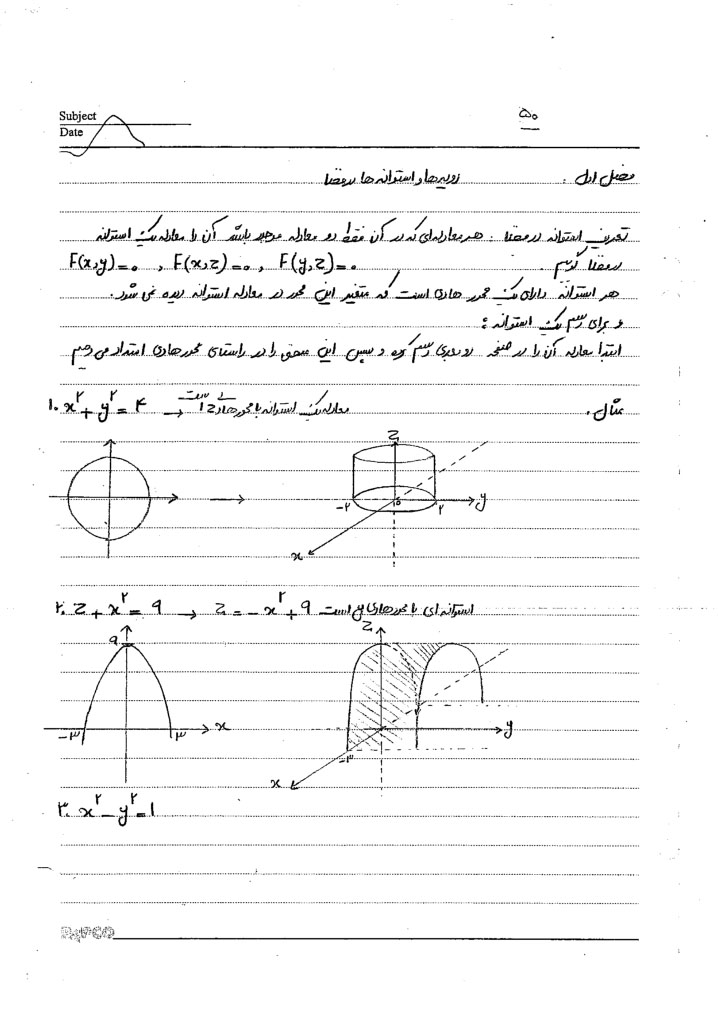 Subject
Date
۵۰
فصل اول . رویه‌ها و استوانه ها در فضا
تعریف استوانه در فضا : هر معادله‌ای که در آن فقط دو معادله موجود باشد آن را معادله یک استوانه
در فضا گوییم . F(x,y)=۰ , F(x,z)=۰ , F(y,z)=۰
هر استوانه دارای یک محور هادی است که متغیر این محور در معادله استوانه دیده نمی شود.
و برای رسم یک استوانه :
ابتدا معادله آن را در صفحه دو بعدی رسم کرده و سپس این منحنی را در راستای محور هادی امتداد می دهیم
مثال.
۱. x² + y² = ۴ → معادله یک استوانه با محور هادی z است
z
-۲ ۰ ۲ y
x
۲. z + x² = 9 → z = -x² + 9 استوانه ای با محور هادی y است
۹
-۳ ۳ x
z
y
-۳
x
۳. x² - y² = 1
PAPCO